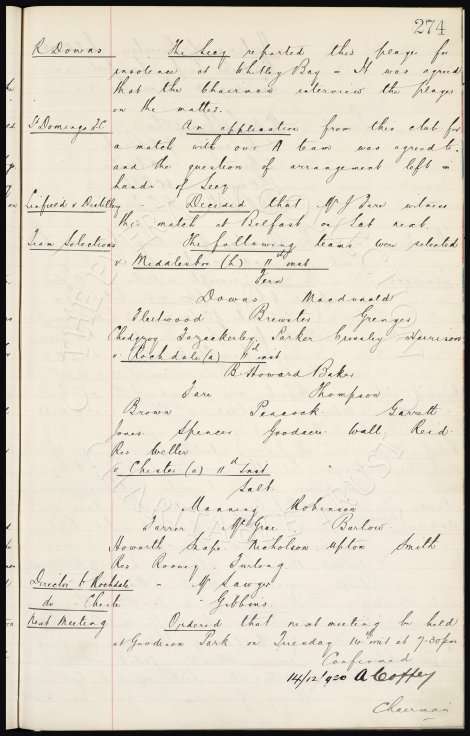 274
R Downs The Secy reported this player for
insolence at Whitley Bay - It was agreed
that the Chairman interview the player
on the matter.
St Domingo F.C. An application from this club for
a match with our A team was agreed to.
and the question of arrangement left in
hands of Secy
Linfield v Distillery - Decided that Mr J Fare witness
this match at Belfast on Sat next.
Team Selections The following teams were selected
v. Middlesbro (h) 11th inst
Fern
Downs Macdonald
Fleetwood Brewster Grenyer
Chedgzoy Fazackerley Parker Crossley Harrison
v Rochdale (a) 11th inst
B Howard Baker
Fare Thompson
Brown Peacock Garrett
Jones Spencer Goodacre Wall Reid.
Res Weller
v Chester (a) 11th Inst
Salt.
Manning Robinson
Farrer McGrae Barlow.
Howarth Snape Nicholson Upton Smith
Res Rooney. Furlong.
Director to Rochdale. " Mr Sawyer
do. Chester " Gibbins
Next Meeting Ordered that next meeting be held
at Goodison Park on Tuesday 14th inst at 7.30 pm
Confirmed
14/12/1920 A Coffey
Chairman
THE EVERTON
CHARITABLE TRUST